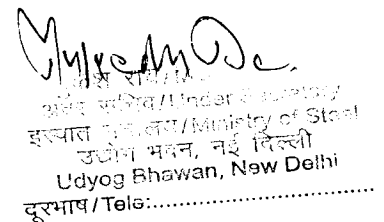 अवर सचिव/Under Secretary
इस्पात मंत्रालय/Ministry of Steel
उद्योग भवन, नई दिल्ली
Udyog Bhawan, New Delhi
दूरभाष/Tele:.................................